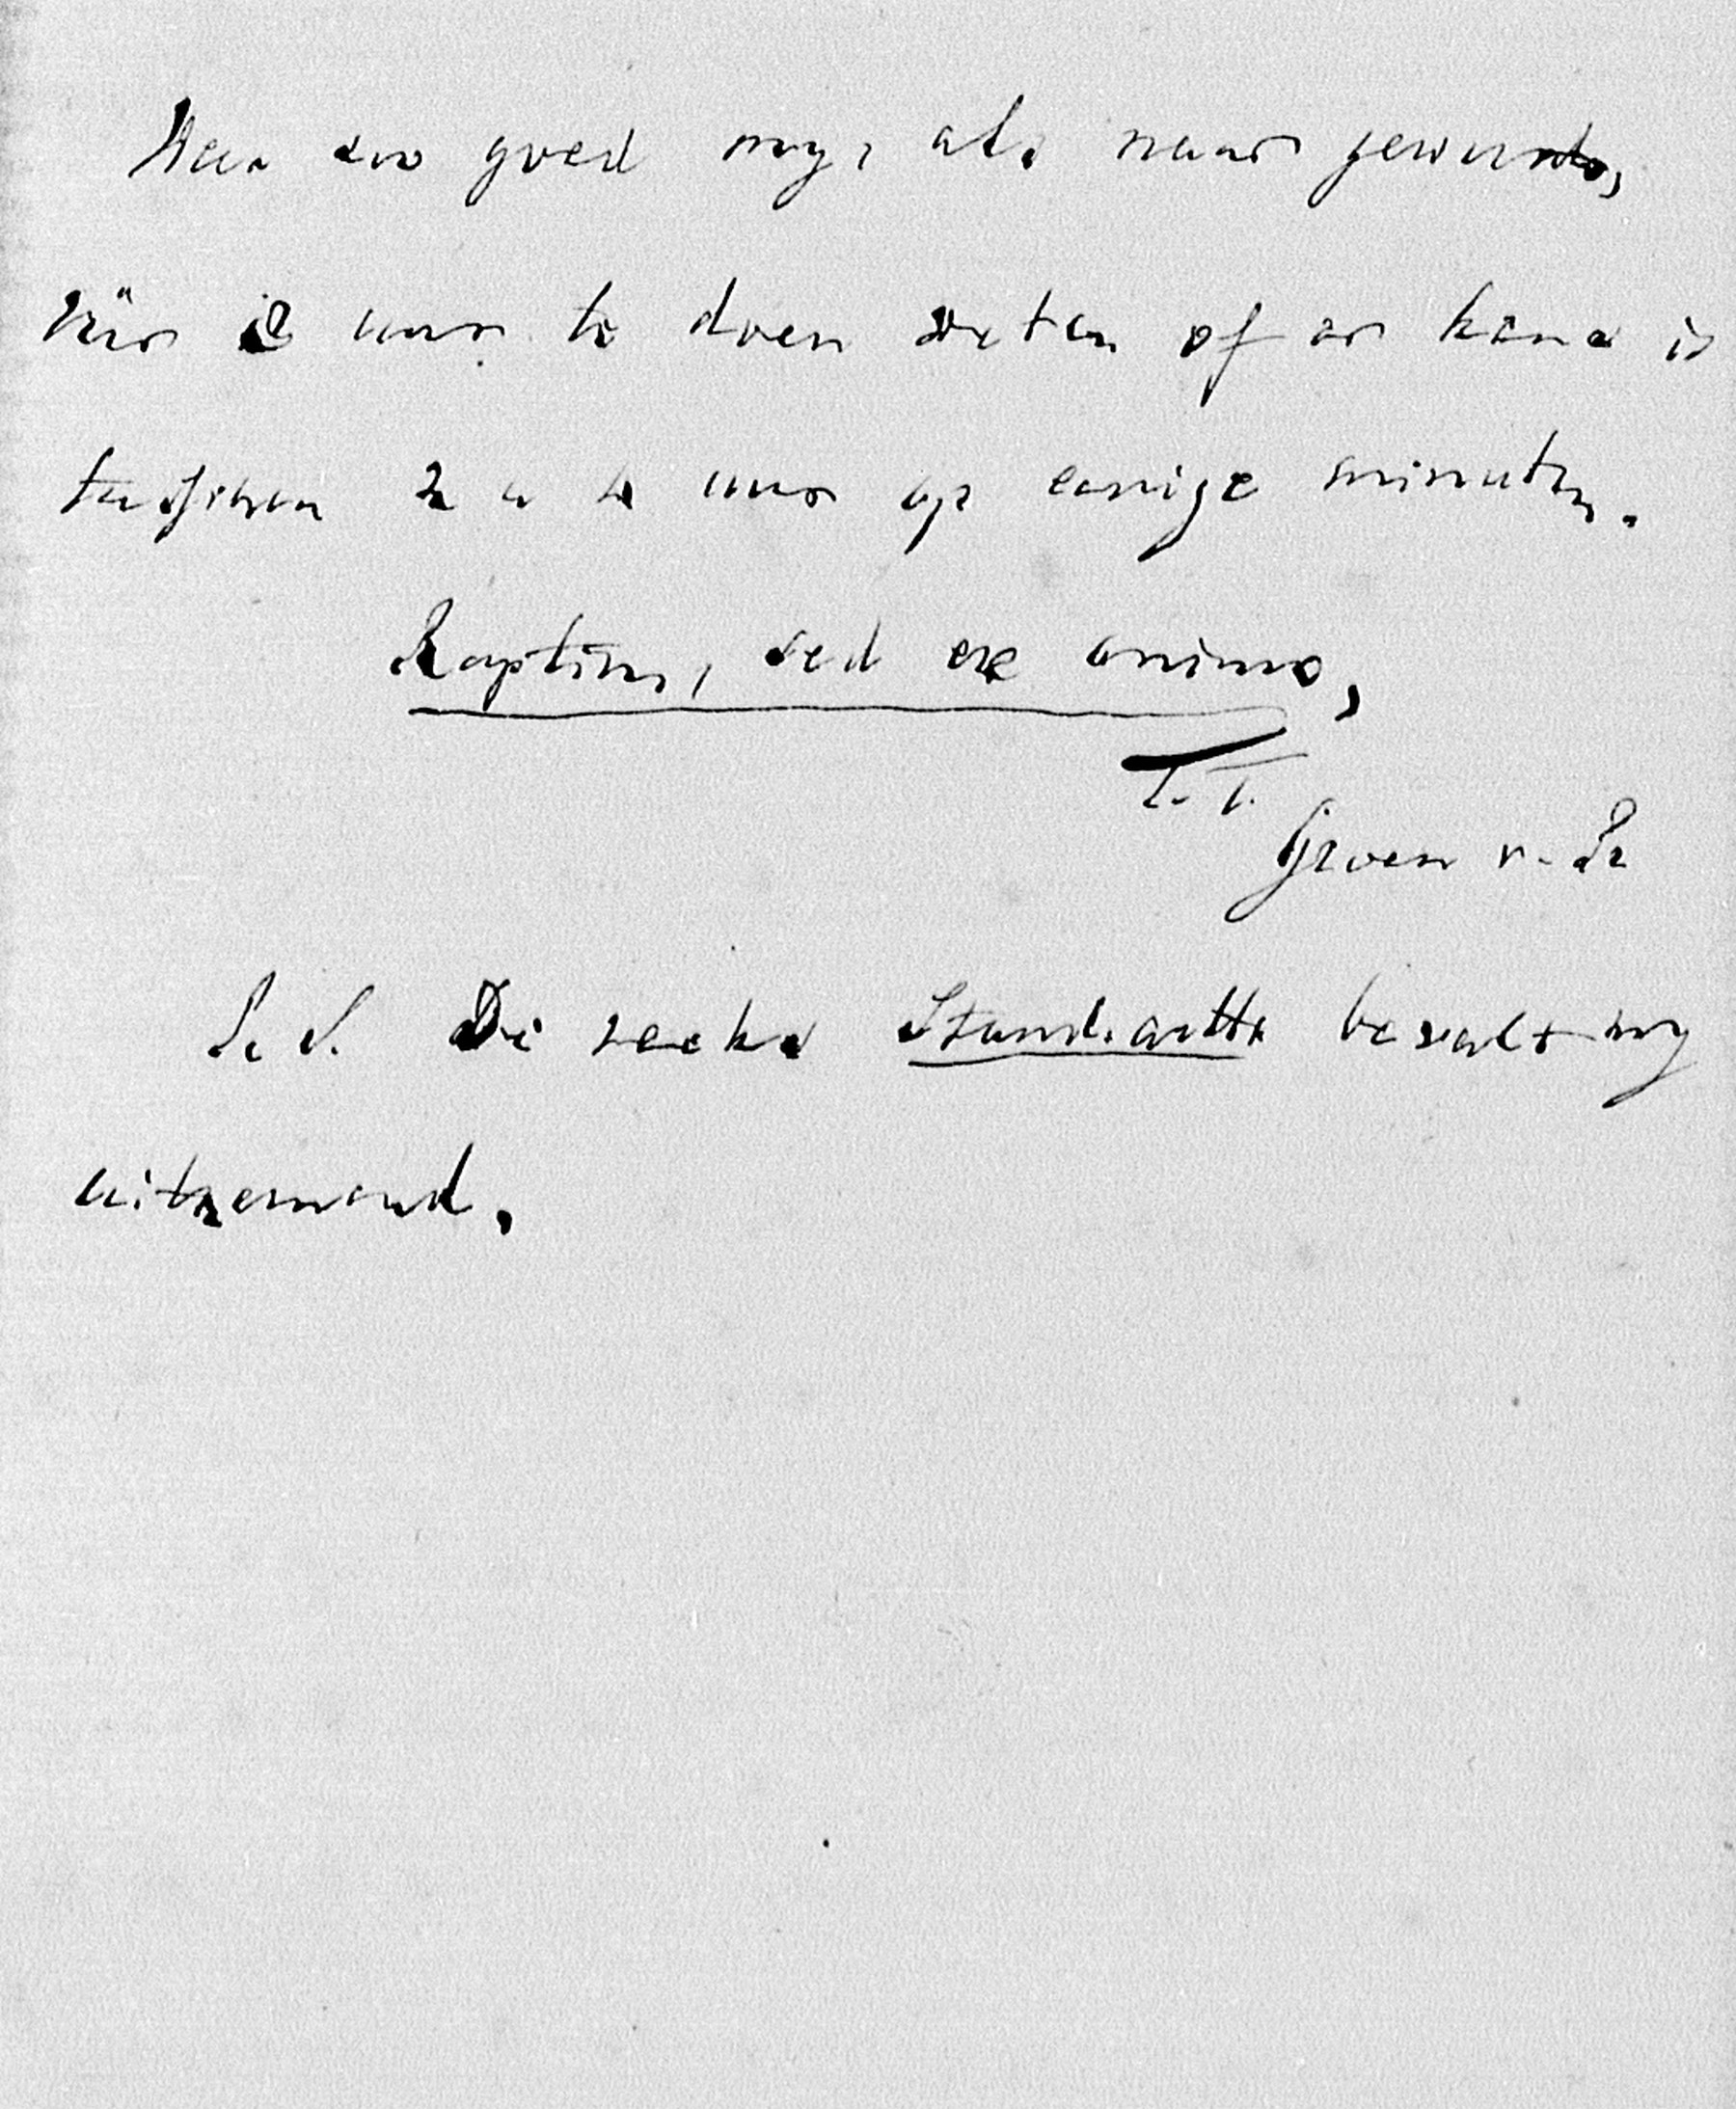 Wees zoo goed mij, als naar gewoonte,
vóór 12 uur te doen weten of er kans is
tusschen 2 a 4 uur op eenige minuten.
Raptim, sed ex animo,
T. T.
Groen v. Pr
P. S. De reeks Standaarth bevalt mij
uitnemend.